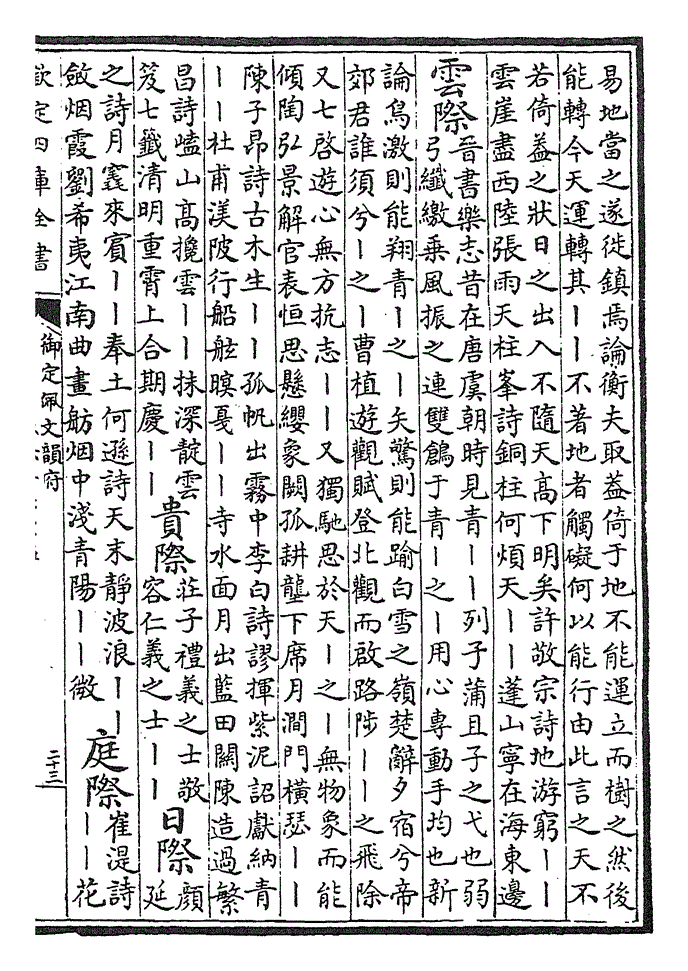 易地當之遂徙鎮焉論衡夫取蓋倚于地不能運立而樹之然後
能轉今天運轉其丨丨不著地者觸礙何以能行由此言之天不
若倚蓋之狀日之出入不隨天高下明矣許敬宗詩地游窮丨丨
雲崖盡西陸張雨天柱峯詩銅柱何煩天丨丨蓬山寧在海東邊
雲際
晉書樂志昔在唐虞朝時見青丨丨列子蒲且子之弋也弱
弓纖繳乗風振之連雙鶬于青丨之丨用心專動手均也新
論鳥激則能翔青丨之丨矢驚則能踰白雪之嶺楚辭夕宿兮帝
郊君誰須兮丨之丨曹植遊觀賦登北觀而啟路陟丨丨之飛除
又七啓遊心無方抗志丨丨又獨馳思於天丨之丨無物象而能
傾陶弘景解官表恒思懸纓象闕孤耕壟下席月澗門橫瑟丨丨
陳子昂詩古木生丨丨孤帆出霧中李白詩謬揮紫泥詔獻納青
丨丨杜甫渼陂行船舷暝戞丨丨寺水面月出藍田關陳造過繁
昌詩嗑山髙攙雲丨丨抹深靛雲
笈七籤清明重霄上合期慶丨丨
貴際
莊子禮義之士敬
容仁義之士丨丨
日際
顔
延
之詩月竁來賓丨丨奉土何遜詩天末靜波浪丨丨
斂烟霞劉希夷江南曲畫舫烟中淺青陽丨丨微
庭際
崔湜詩
丨丨花
欽定四庫全書
御定佩文韻府
二十三